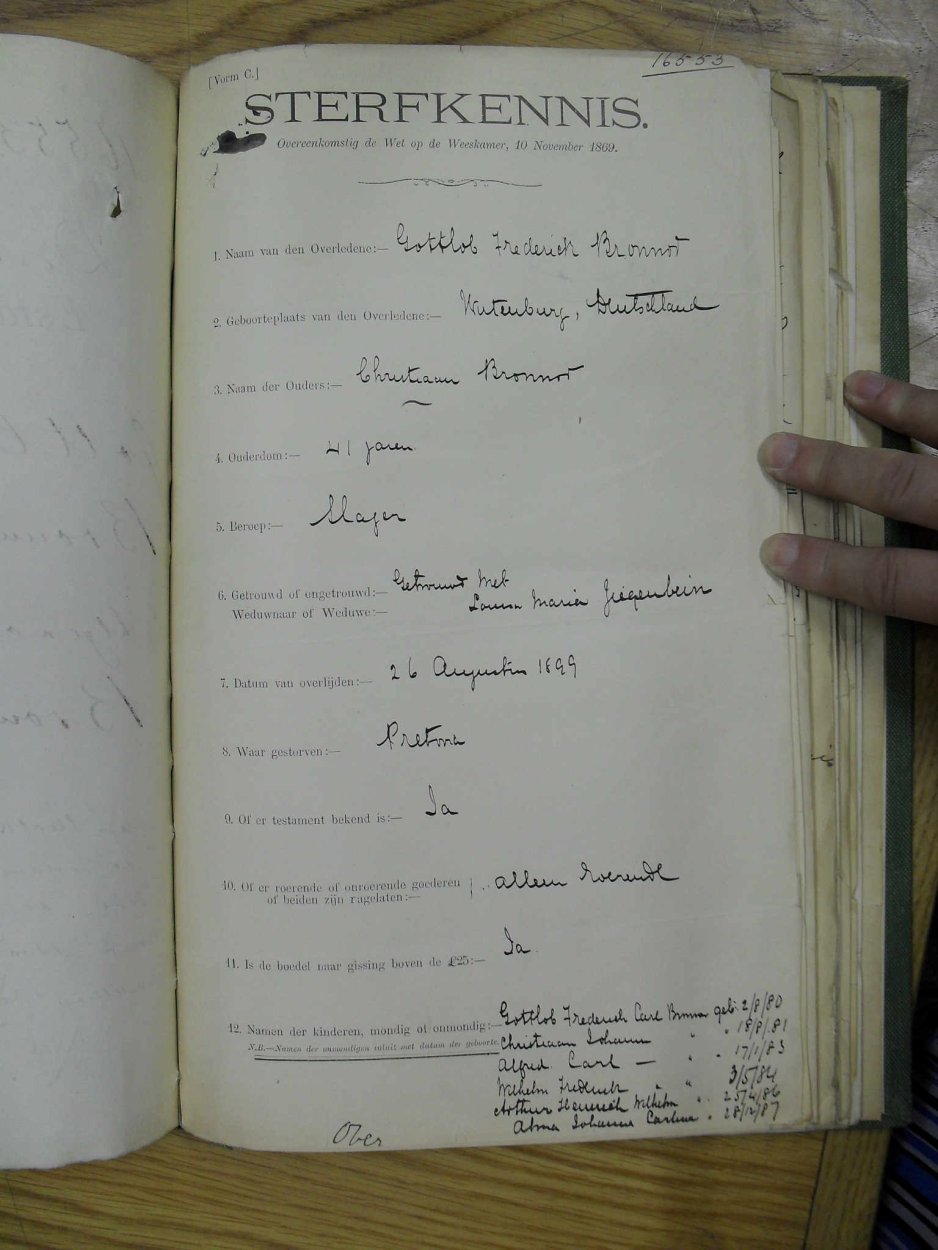 [Vorm C.]
16553
STERFKENNIS.
Overeenkomstig de Wet op de Weeskamer, 10 November 1869.
1. Naam van den Overledene:— Gottlob Frederich Bronnor
2. Geboorteplaats van den Overledene:— Wutenburg, Deutschland
3. Naam der Ouders:— Christiaan Bronnor
4. Ouderdom:— 41 jaren
5. Beroep:— Slager
6. Getrouwd of ongetrouwd:— Getrouwd met
Weduwnaar of Weduwe:— Louisa Maria Ziegenbein
7. Datum van overlijden:— 26 Augustus 1899
8. Waar gestorven:— Pretoria
9. Of er testament bekend is:— Ja
10. Of er roerende of onroerende goederen
of beiden zijn nagelaten:— alleen roerende
11. Is de boedel naar gissing boven de £25:— Ja
12. Namen der kinderen, mondig of onmondig:— Gottlob Frederich Carl Bronnor geb: 2/8/80
N.B.—Namen der onmondigen voluit met datum der geboorte. Christiaan Johann " " 18/8/81
Alfred Carl — " " 17/1/83
Wilhelm Fredrich " " 3/5/84
Arthur Heinrich Wilhelm " 25/4/86
Alma Johanna Carlina " 28/12/87
Over